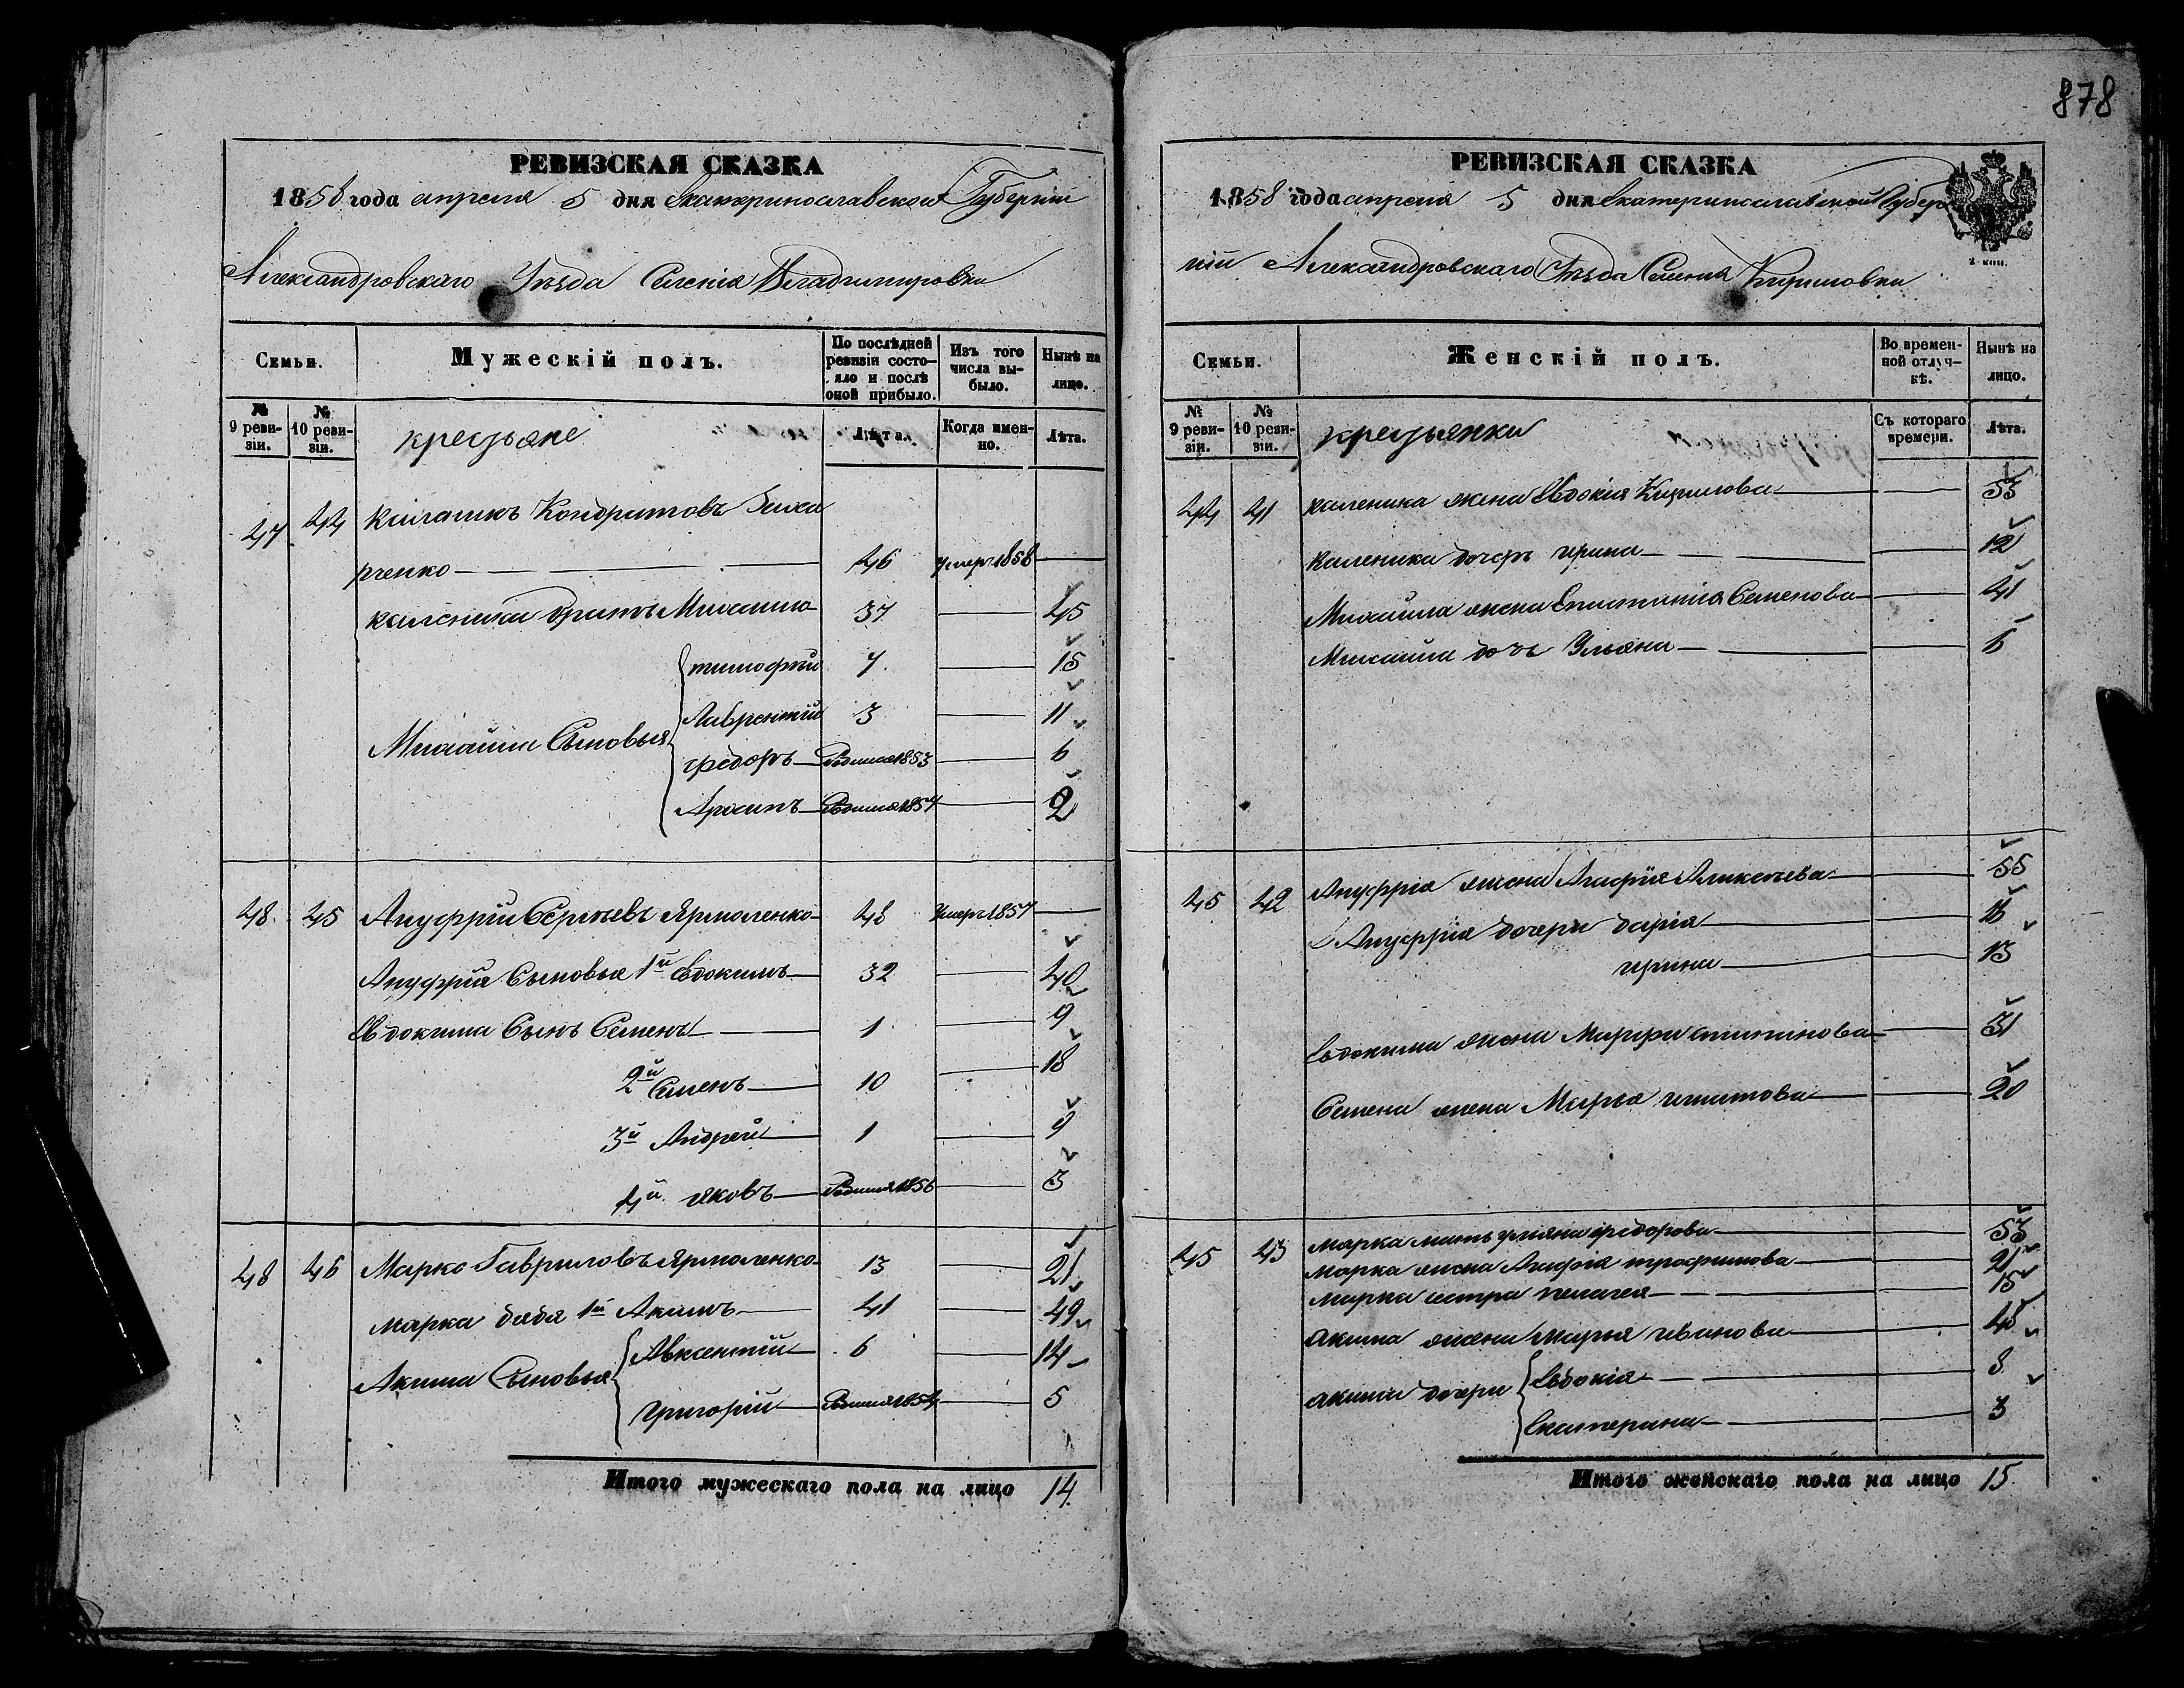 878
РЕВИЗСКАЯ СКАЗКА
1858 года апреля 5 дня Екатеринославской Губерніи
Александровскаго Уезда Селенія Владимировки
Семьи.
Мужескій полъ.
По послѣдней ревизіи состояло и послѣ оной прибыло.
Изъ того числа выбыло.
Нынѣ на лицо.
№ 9 ревизіи.
№ 10 ревизіи.
крестьяне
Лѣта.
Когда именно.
Лѣта.
47 44 Каленикъ Кондратовъ
рченко 46 умер. 1858
Каленика братъ Михайло 37 45
Михайла Сыновья
тимофей 7 15
Лаврентій 3 11
федоръ Родился 1853 6
Архипъ Родился 1857 2
48 45 Ануфрій Сергѣевъ Ярмоленко 48 Умеръ 1857
Ануфрія Сыновья 1й Евдокимъ 32 40
Евдокима Сынъ Семенъ 1 9
2й Семенъ 10 18
3й Андрей 1 9
4й яковъ Родился 1856 3
48 46 Марко Гавриловъ Ярмоленко 13 21
Марка дядя 1й Акимъ 41 49
Акима Сыновья
Авксентій 6 14
григорій Родился 1854 5
Итого мужескаго пола на лицо 14.
РЕВИЗСКАЯ СКАЗКА
1858 года апреля 5 дня Екатеринославской Губер
ніи Александровскаго Уезда Селенія Кириловки
2 коп.
Семьи.
Женскій полъ.
Во временной отлучкѣ.
Нынѣ на лицо.
№ 9 ревизіи.
№ 10 ревизіи.
крестьянки
Съ котораго времени.
Лѣта.
44 41 Каленика жена Евдокія Кирилова 53
Каленика дочерь ирина 12
Михайла жена Епистимія Семенова 41
Михайла дочь Ульяна 6
45 42 Ануфрія жена Агафія Алексеева 55
Ануфрія дочери дарія 16
ирина 13
Евдокима жена Марфа 31
Семена жена Марья игнатова 20
45 43 Марка мать ульяна федорова 53
Марка жена Агафія трофимова 21
Марка сестра пелагея 15
Акима жена Марья иванова 45
Акима дочери
Евдокія 8
Екатерина 3
Итого женскаго пола на лицо 15.